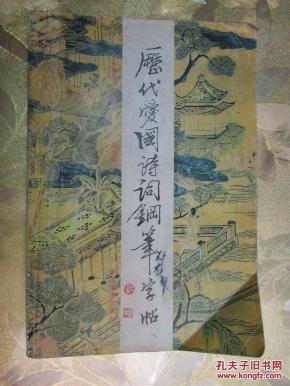 歷代愛國詩詞鋼筆字帖
孔夫子旧书网